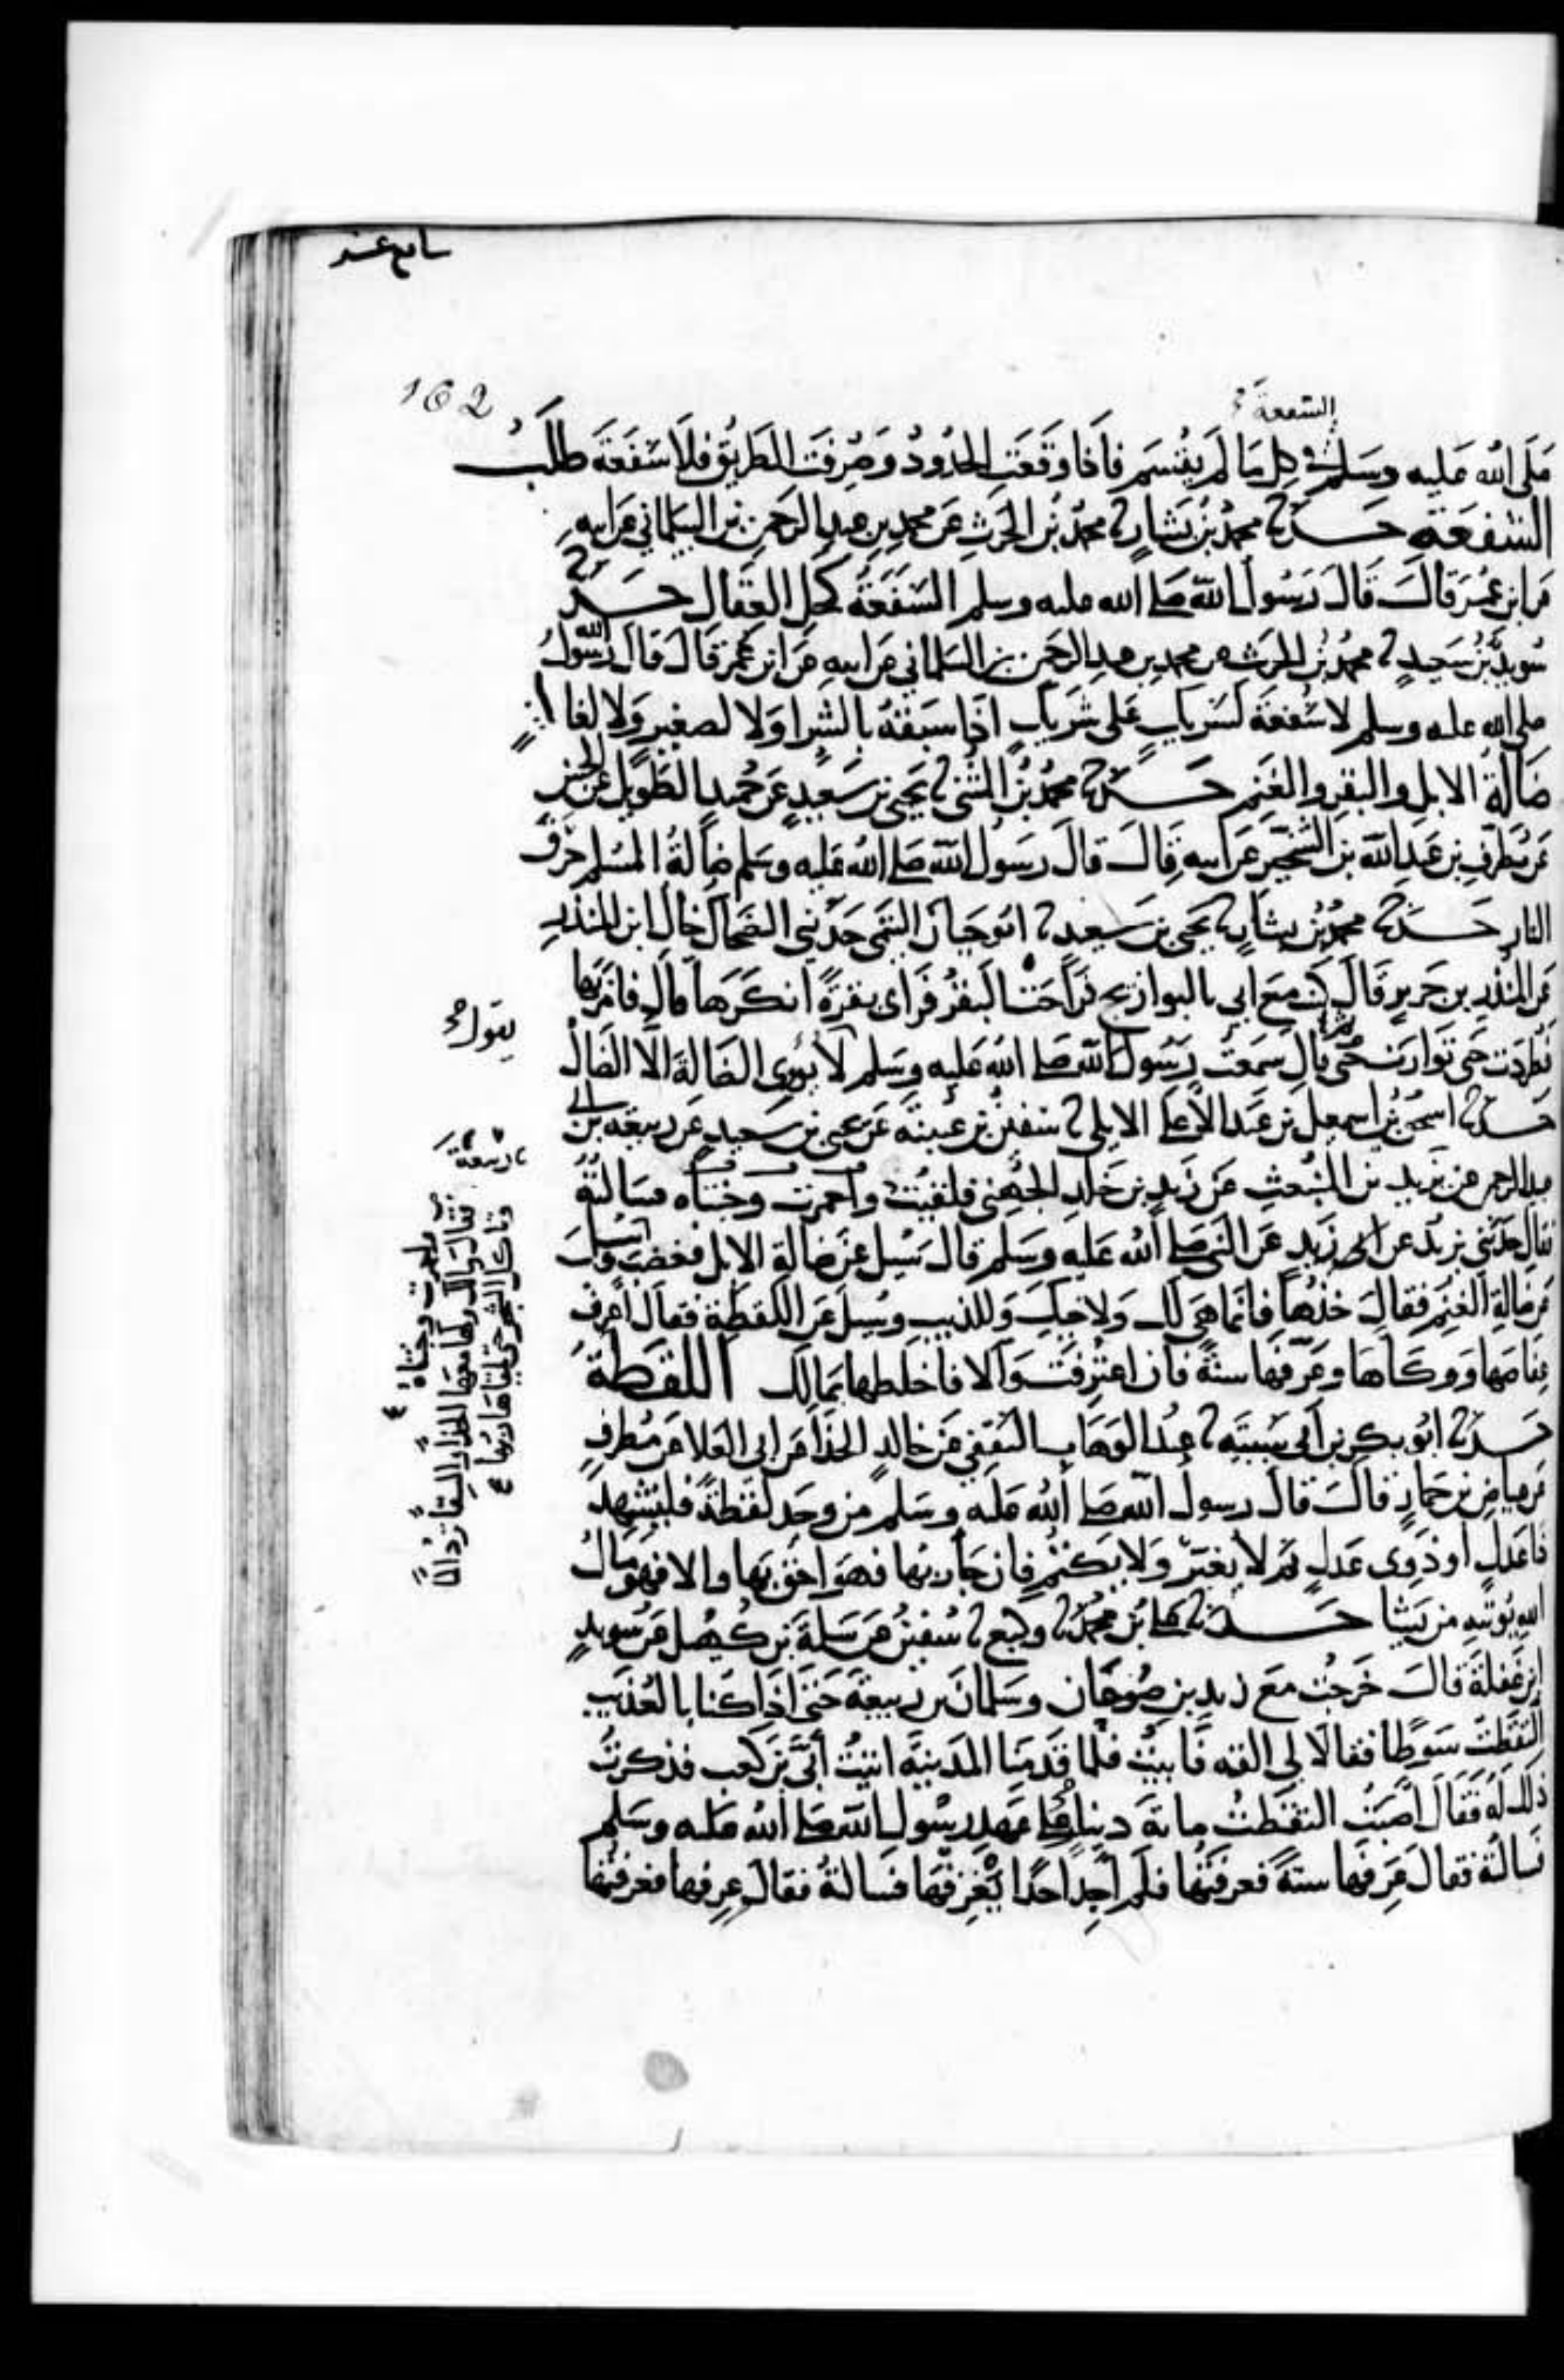 سابع عشر
162
الشفعة
صلى الله عليه وسلم في كل ما لم يقسم فاذا وقعت الحدود وصرفت الطريق فلا شفعة طلب
الشفعة حدثنا محمد بن بشار نا محمد بن الحرث عن محمد بن عبد الرحمن بن البيلماني عن ابيه
عن ابن عمر قال قال رسول الله صلى الله عليه وسلم الشفعة كحل العقال حدثنا
سويد بن سعيد نا محمد بن الحرث عن محمد بن عبد الرحمن بن البيلماني عن ابيه عن ابن عمر قال قال رسول الله
صلى الله عليه وسلم لا شفعة لشريك على شريك اذا سبقه بالشرا ولا لصغير ولا لغائب
ضالة الابل والبقر والغنم حدثنا محمد بن المثنى نا يحيى بن سعيد عن حميد الطويل عن الحسن
عن مطرف بن عبد الله بن الشخير عن ابيه قال قال رسول الله صلى الله عليه وسلم ضالة المسلم حرق
النار حدثنا محمد بن بشار نا يحيى بن سعيد نا ابو حيان التيمي حدثني الضحاك خال ابن المنذر
عن المنذر بن جرير قال كنت مع ابي بالبوازيج فراحت البقر فراى بقرة انكرها قال فامر بها
فطردت حتى توارت ثم قال سمعت رسول الله صلى الله عليه وسلم لا يوري الضالة الا الضال
يقول
حدثنا اسحق بن اسمعيل بن عبد الاعلى الايلي نا سفين بن عيينه عن يحيى بن سعيد عن ربيعه بن ابي
عبد الرحمن عن يزيد مولى المنبعث عن زيد بن خالد الجهني فلقيت واحمرت وجنتاه فسالته
فقال حدثني يزيد عن زيد عن النبي صلى الله عليه وسلم قال سئل عن ضالة الابل فغضب وسئل
عن ضالة الغنم فقال خذها فانما هي لك ولاخيك وللذيب وسئل عن اللقطة فقال اعرف
عفاصها ووكاها وعرفها سنة فان اعترفت والا فاخلطها بمالك اللقطة
ربيعة
واحمرت وجنتاه
فقال مالك ولها معها الحذا والسقا ترد الما
وتاكل الشجر حتى يلقاها ربها
حدثنا ابو بكر بن ابي شيبة نا عبد الوهاب الثقفي عن خالد الحذا عن ابي العلا عن مطرف
عن عياض بن حمار قال قال رسول الله صلى الله عليه وسلم من وجد لقطة فليشهد
ذا عدل او ذوي عدل ثم لا يغير ولا يكتم فان جا ربها فهو احق بها والا فهو مال
الله يوتيه من يشا حدثنا علي بن محمد نا وكيع نا سفين عن سلمة بن كهيل عن سويد
ابن غفلة قال خرجت مع زيد بن صوحان وسلمان بن ربيعة حتى اذا كنا بالعذيب
التقطت سوطا فقالا لي القه فابيت فلما قدمنا المدينة اتيت ابي بن كعب فذكرت
ذلك له فقال اصبت التقطت ماىة دينار على عهد رسول الله صلى الله عليه وسلم
فسالته فقال عرفها سنة فعرفتها فلم اجد احدا يعرفها فسالته فقال عرفها فعرفتها